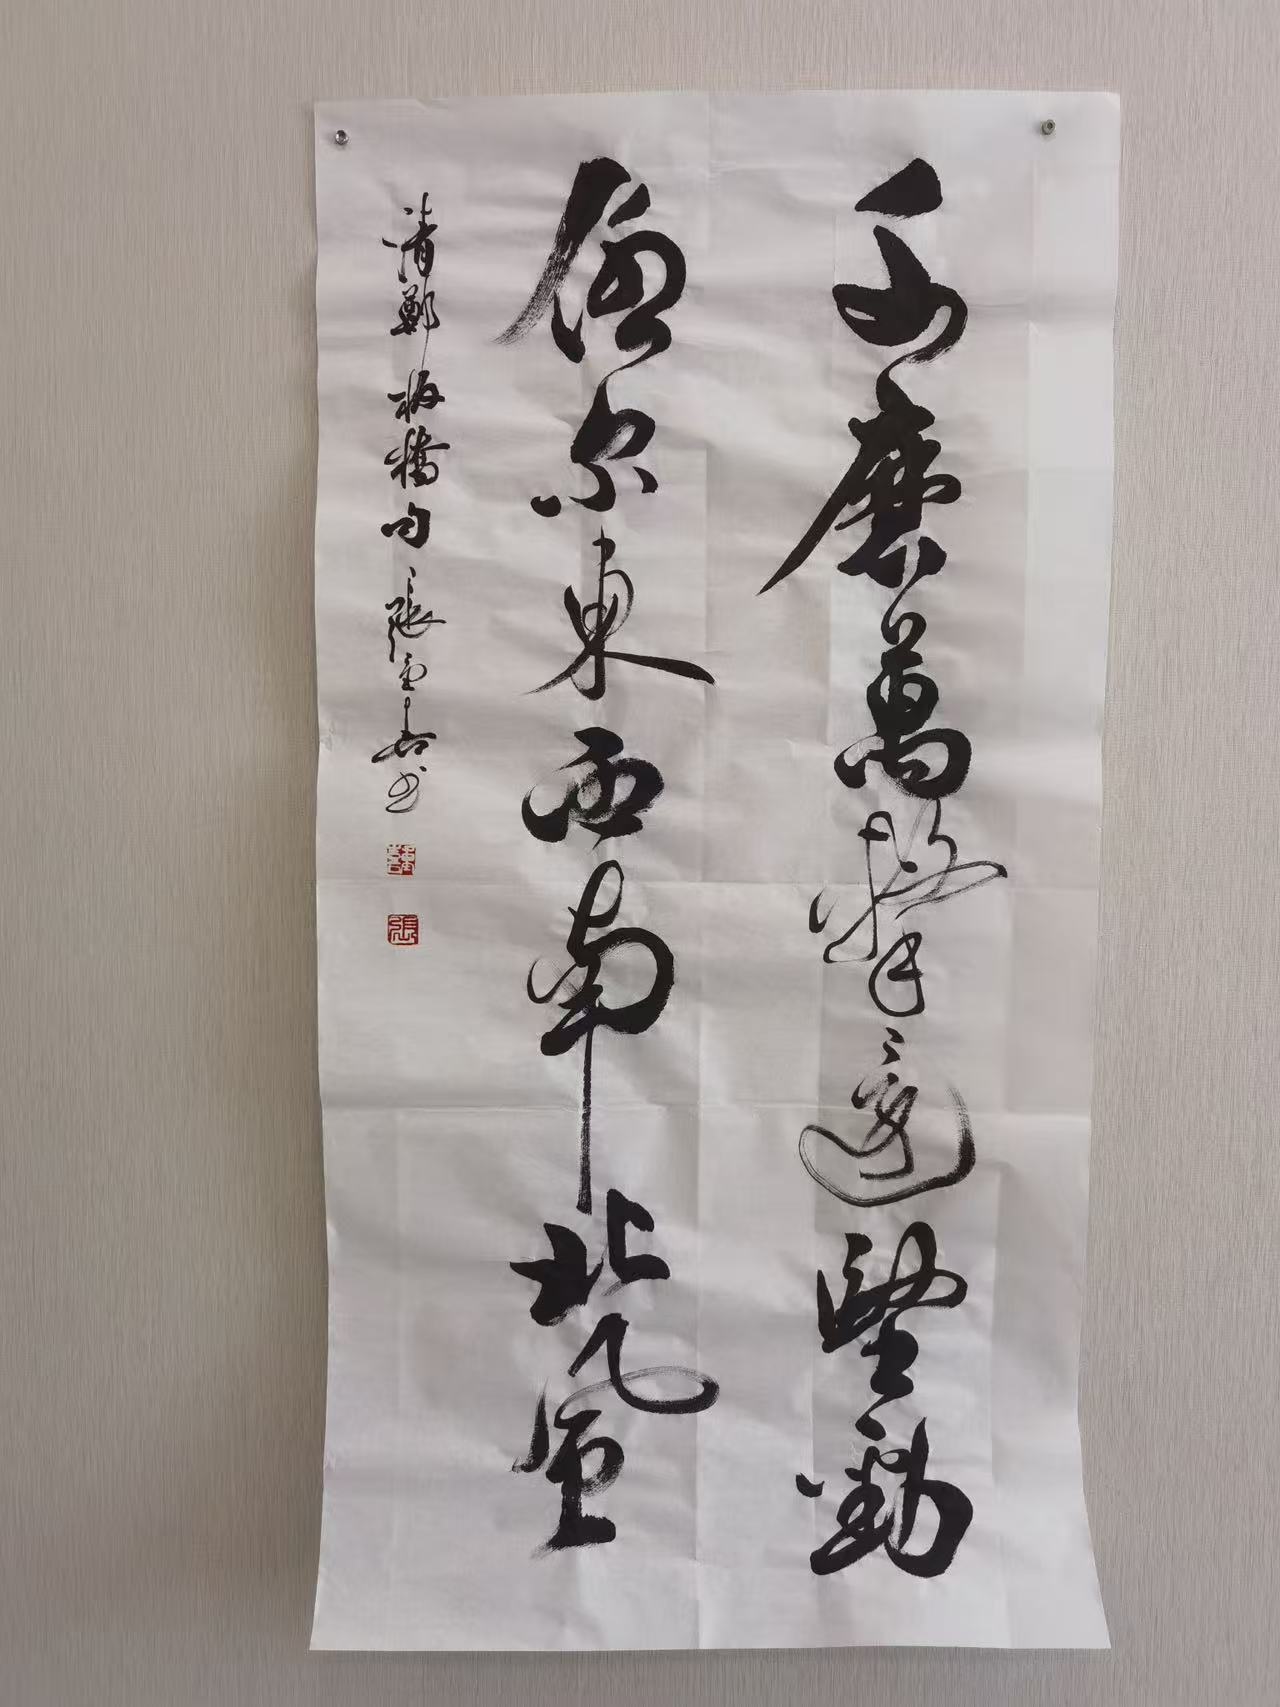 千磨萬擊還堅勁
任尔東西南北風
清鄭板橋句 張书
張